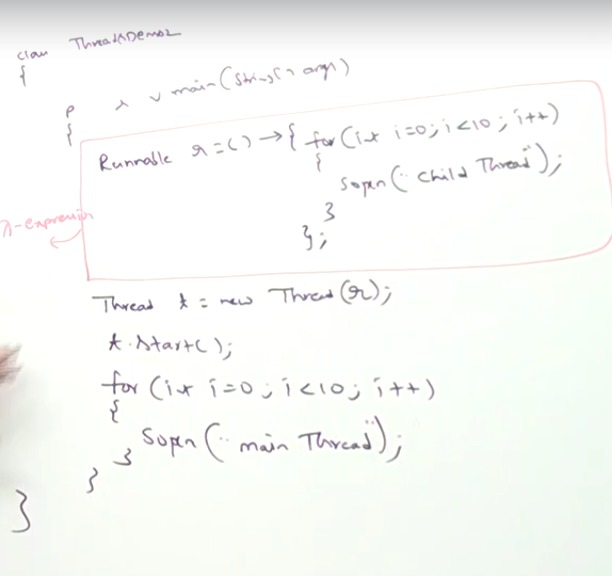 class ThreadDemo2
{
p s v main(String[] args)
{
Runnable r = () → { for (int i=0; i<10; i++)
{
Sopln("Child Thread");
}
};
λ-expression
Thread t = new Thread(r);
t.start();
for (int i=0; i<10; i++)
{
Sopln("main Thread");
}
}
}